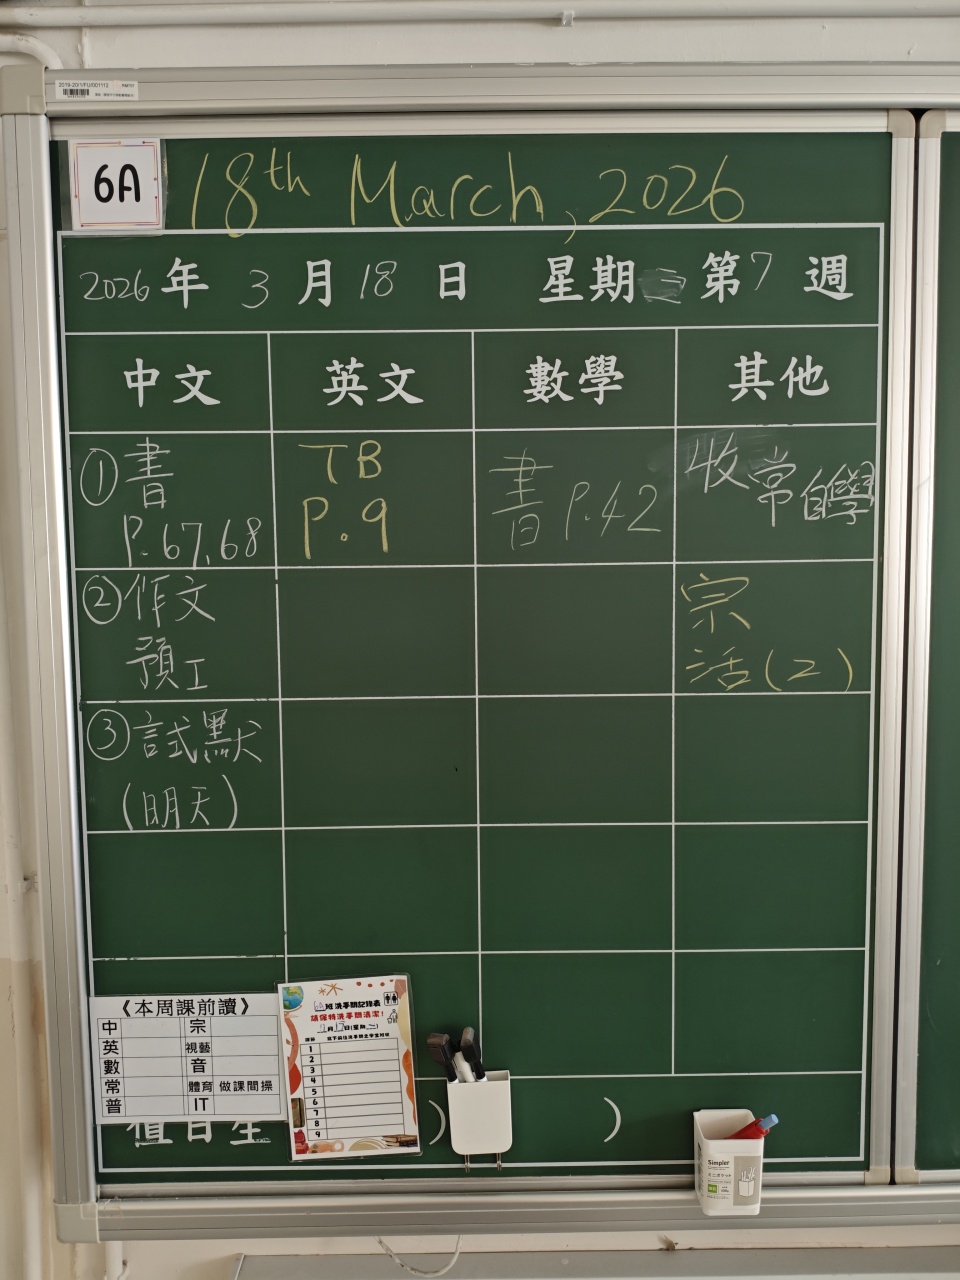 2019-20/VFU/001112
6A
18th March, 2026
2026年 3月18日 星期三 第7週
中文 英文 數學 其他
①書
P.67,68
TB
P.9
書 P.42
收常自學
②作文
預工
宗
活(2)
③試默
(明天)
《本周課前讀》
中 宗
英 視藝
數 音
常 體育 做課間操
普 IT
6A班洗手間記錄表
請保持洗手間清潔!
1
2
3
4
5
6
7
8
9
值日生
) )
Simpler